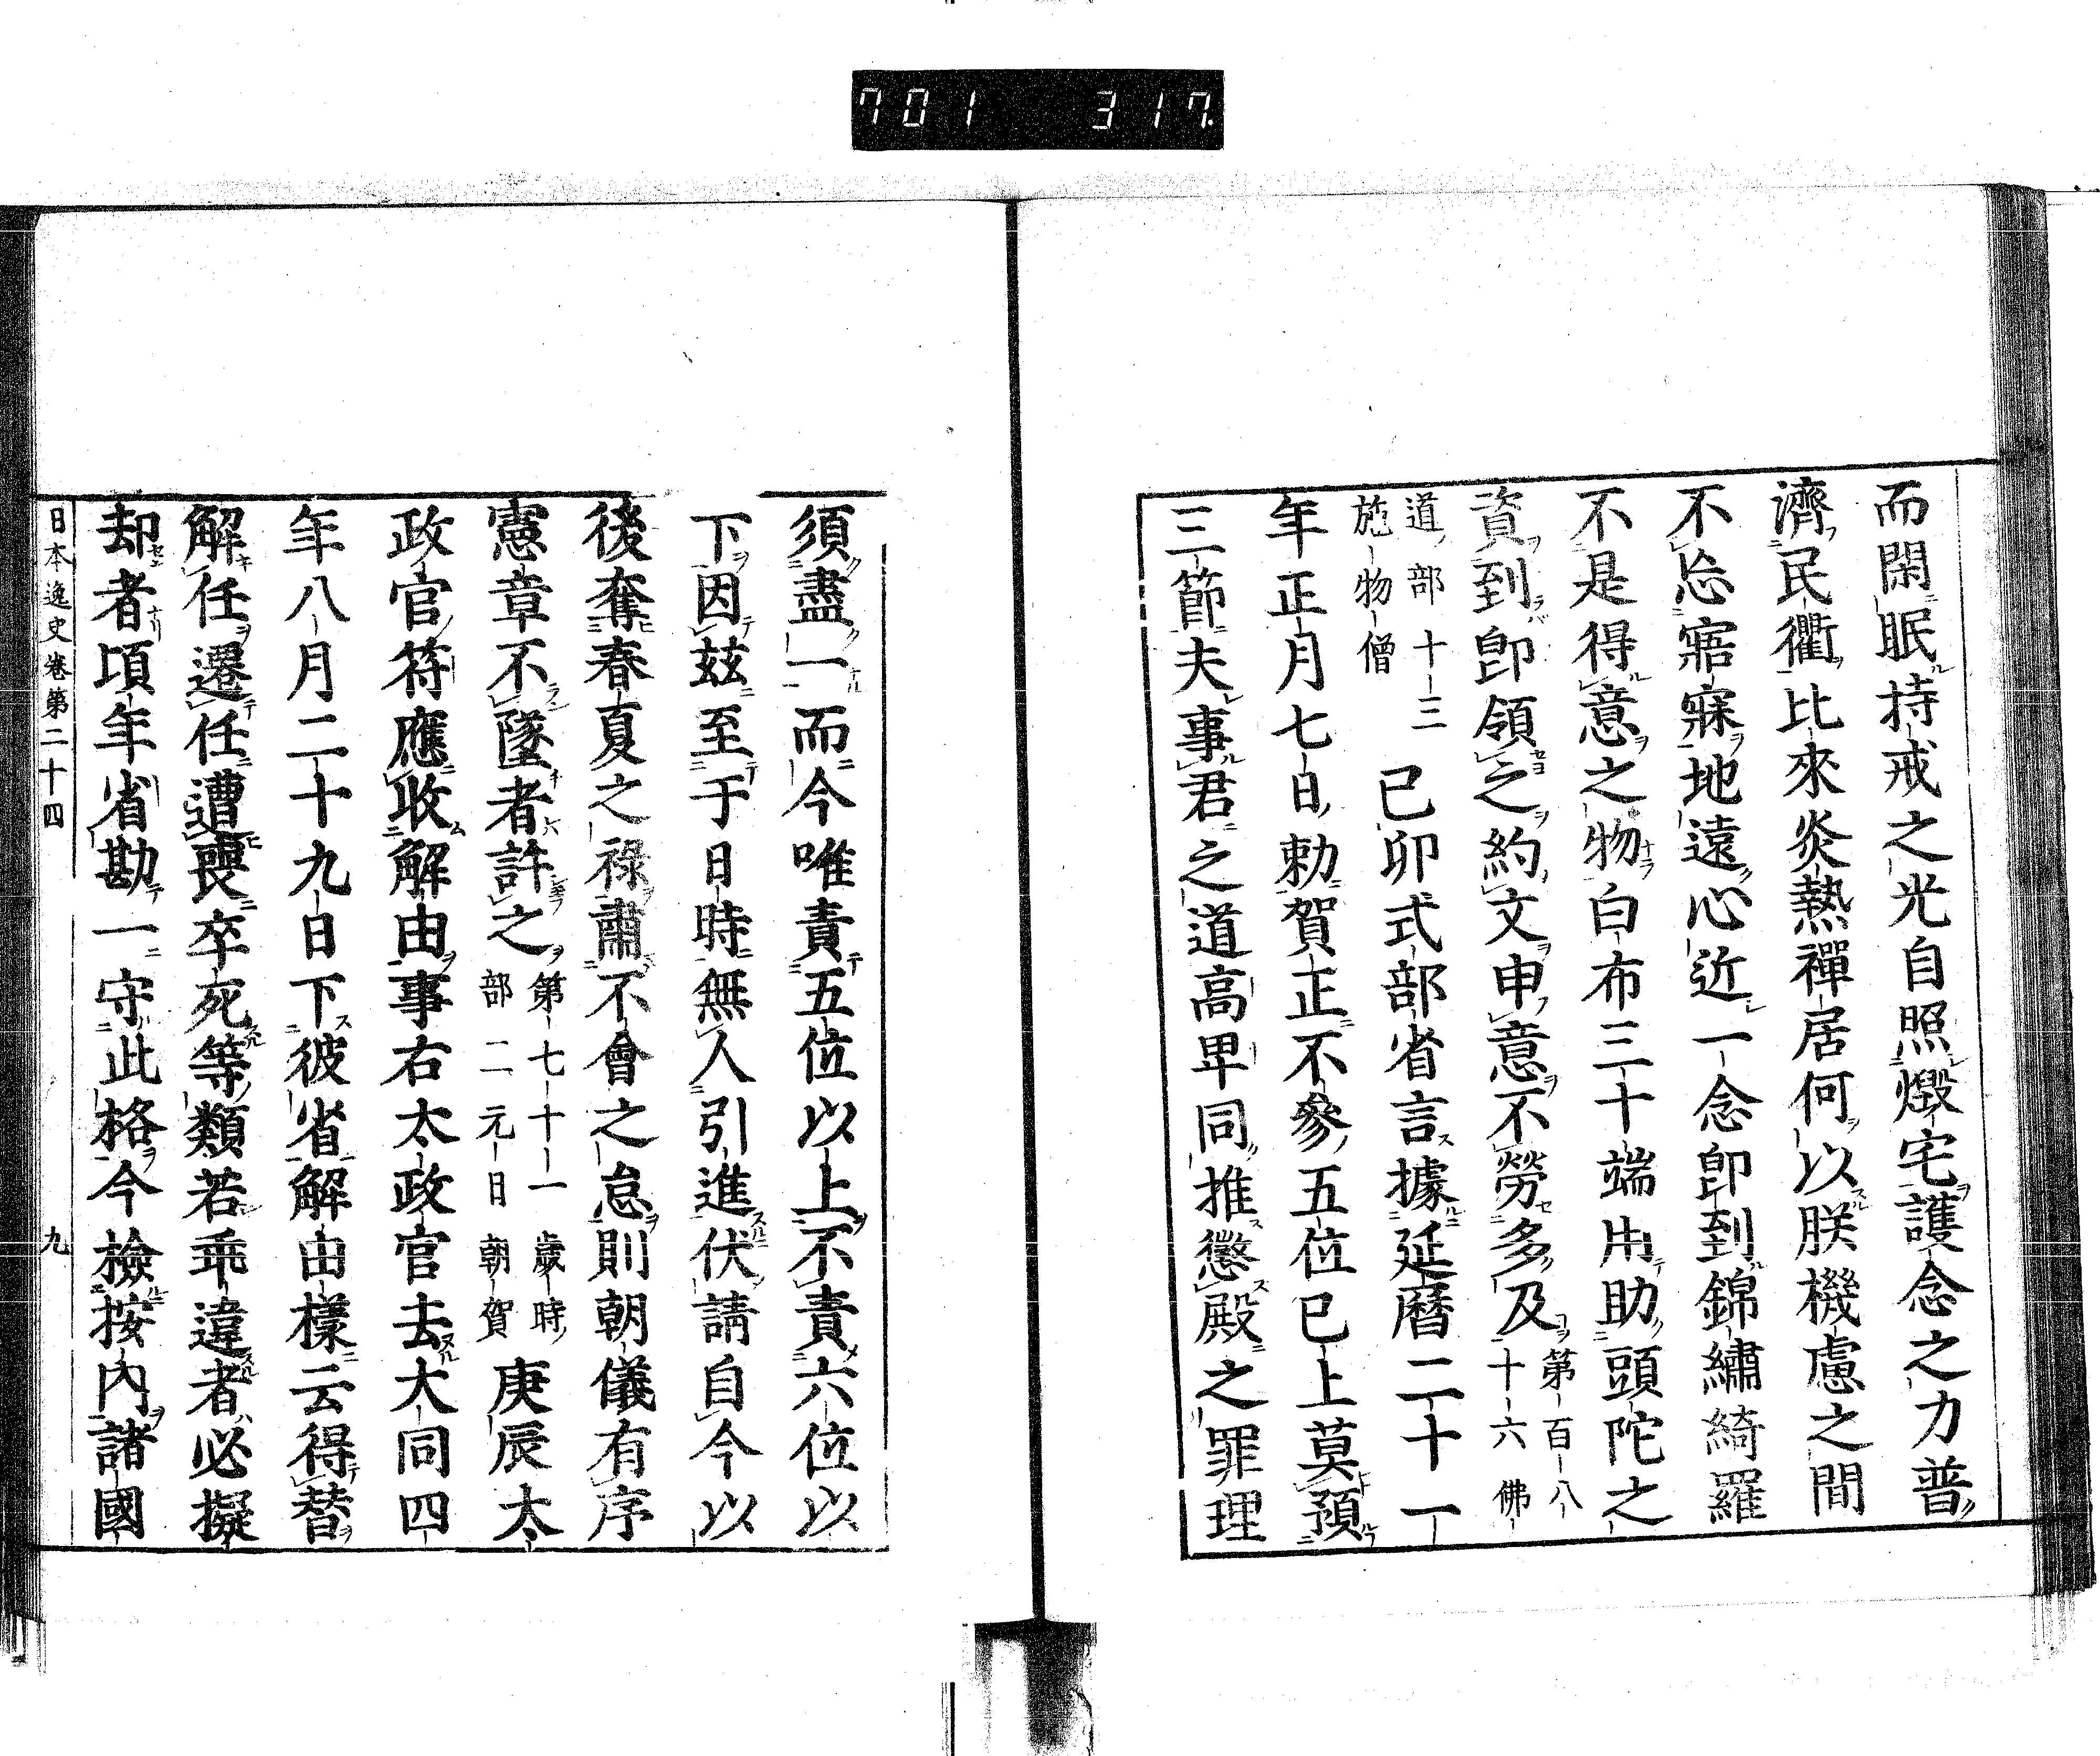 701 317
而閑眠持戒之光自照燬宅護念之力普
濟民衢比來炎熱禪居何以朕機慮之間
不忘寤寐地遠心近一念卽到錦繡綺羅
不是得意之物白布三十端用助頭陀之
資到卽領之約文申意不勞多及第百八
十六佛
道部十三
施物僧
已卯式部省言據延曆二十一
年正月七日勅賀正不參五位已上莫預
三節夫事君之道高卑同推懲殿之罪理
須盡一而今唯責五位以上不責六位以
下因玆至于日時無人引進伏請自今以
後奪春夏之祿肅不會之怠則朝儀有序
憲章不墜者許之第七十一歲時
部二元日朝賀
庚辰太
政官符應收解由事右太政官去大同四
年八月二十九日下彼省解由樣云得替
解任遷任遭喪卒死等類若乖違者必擬
却者頃年省勘一守此格今檢按內諸國
日本逸史卷第二十四
九